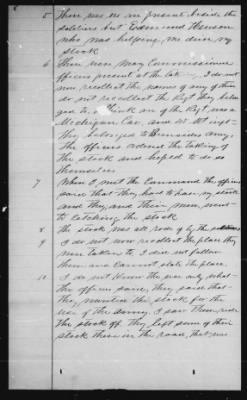 5 There was no one present beside the
soldiers but Edmund Henson
who was helping me drive my
stock
6 There were many Commissioned
officers present at the taking, I do not
now recollect the names of any of them
do not recollect the Regt they belon
ged to. I think one of the Regts was a
Michigan Cav, and
they belonged to Burnsides army.
The officers ordered the taking of
the stock and helped to do so
themselves
7 When I met the Command the officers
said that they had to have my stock
and they and their men went
to catching the stock
8 The stock was all rode of by the soldiers
9 I do not now recollect the place they
were taken to, I did not follow
them and cannot state the place
10 I do not know the use only what
the officers said, they said that
they wanted the stock for the
use of the army. I saw them ride
the stock off. They left some of their
stock there in the road, that was